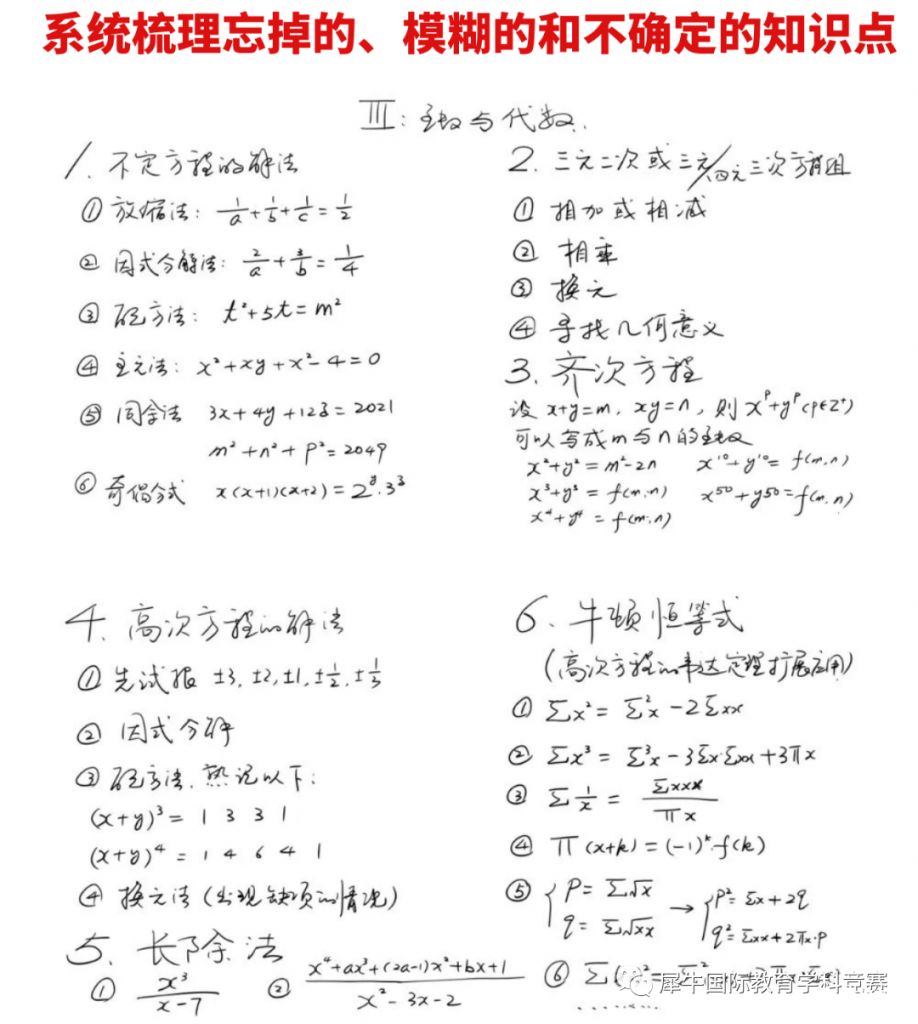 系统梳理忘掉的、模糊的和不确定的知识点
III: 整数与代数.
1. 不定方程的解法
① 放缩法: 1/a + 1/b + 1/c = 1/2
② 因式分解法: 2/a + 3/b = 1/4
③ 配方法: t²+5t=m²
④ 主元法: x²+xy+x²-4=0
⑤ 同余法 3x+4y+12z=2021
m²+n²+p²=2049
⑥ 奇偶分析 x(x+1)(x+2)=2⁸·3³
2. 三元二次或三元/四元三次方程组
① 相加或相减
② 相乘
③ 换元
④ 寻找几何意义
3. 齐次方程
设 x+y=m, xy=n, 则 xᵖ+yᵖ (p∈Z⁺)
可以写成m与n的函数
x²+y²=m²-2n x¹⁰+y¹⁰=f(m,n)
x³+y³=f(m,n) x⁵⁰+y⁵⁰=f(m,n)
x⁴+y⁴=f(m,n)
4. 高次方程的解法
① 先试根 ±3,±2,±1,±1/2,±1/3
② 因式分解
③ 配方法.熟记以下:
(x+y)³= 1 3 3 1
(x+y)⁴= 1 4 6 4 1
④ 换元法(出现缺项的情况)
5. 长除法
① x³/(x-7) ② (x⁴+ax³+(2a-1)x²+bx+1)/(x²-3x-2)
6. 牛顿恒等式
(高次方程的韦达定理扩展应用)
① Σx²=Σ²x-2Σxx
② Σx³=Σ³x-3Σx·Σxx+3πx
③ Σ1/x = Σxxx/πx
④ π(x+k)=(-1)ᵏ·f(k)
⑤ { p=Σ√x q=Σ√xx → { p²=Σx+2q q²=Σxx+2πx·p
⑥ Σ
犀牛国际教育学科竞赛